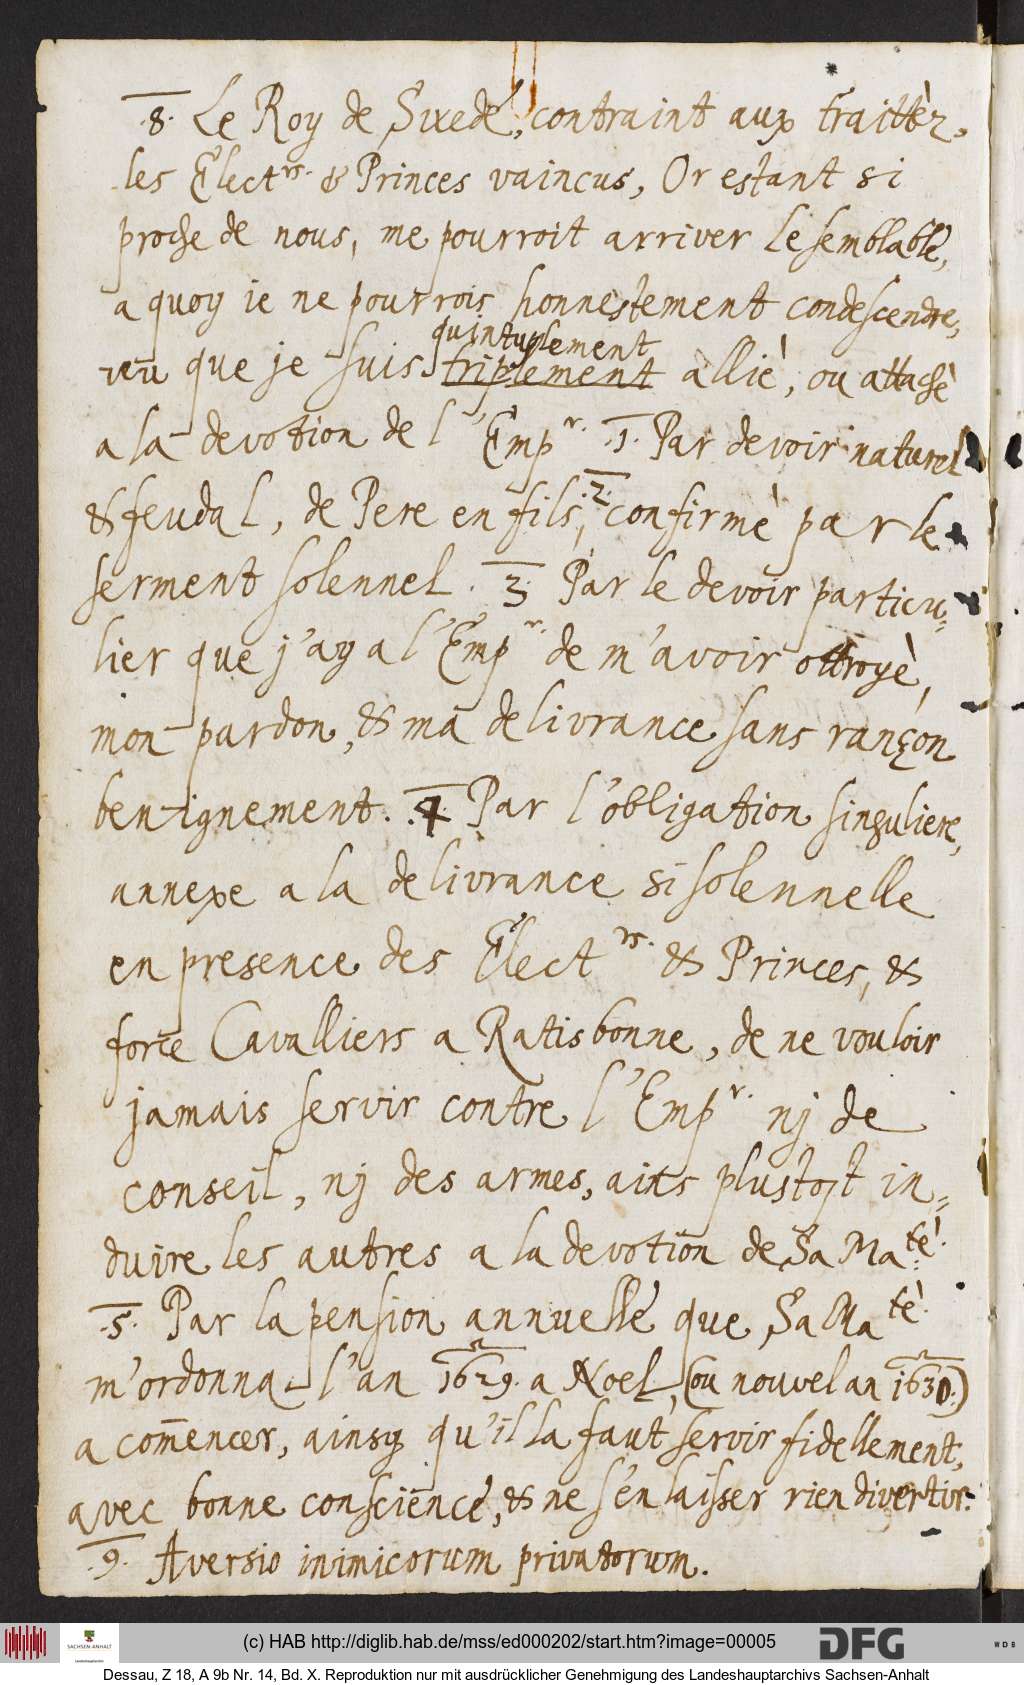 .8. Le Roy de Swede, contraint aux traittèz,
les Elect.rs & Princes vaincus, Or estant si
proche de nous, me pourroit arriver le semblable,
a quoy ie ne pourrois honnestement condescendre,
quintuplement
veu que je suis triplement alliè, ou attachè
a la devotion de l'Emp.r .1. Par devoir naturel
& feudal, de Pere en fils, .2. confirmè par le
serment solennel. 3. Par le devoir particu=
lier que j'ay a l'Emp.r de m'avoir ottroyè,
mon pardon, & ma delivrance sans rançon
benignement. .4. Par l'obligation singuliere,
annexe a la delivrance si solennelle
en presence des Elect.rs & Princes, &
force Cavalliers a Ratisbonne, de ne vouloir
jamais servir contre l'Emp.r nj de
conseil, nj des armes, ains plustost in=
duire les autres a la devotion de Sa Ma.tè
.5. Par la pension annuelle que Sa Ma.tè
m'ordonna l'an 1629. a Noel, (ou nouvel an 1630.)
a com̄encer, ainsy qu'il la faut servir fidellement,
avec bonne conscience, & ne s'en laisser rien divertir.
.9. Aversio inimicorum privatorum.
(c) HAB http://diglib.hab.de/mss/ed000202/start.htm?image=00005
SACHSEN-ANHALT
Landeshauptarchiv
DFG
WDB
Dessau, Z 18, A 9b Nr. 14, Bd. X. Reproduktion nur mit ausdrücklicher Genehmigung des Landeshauptarchivs Sachsen-Anhalt